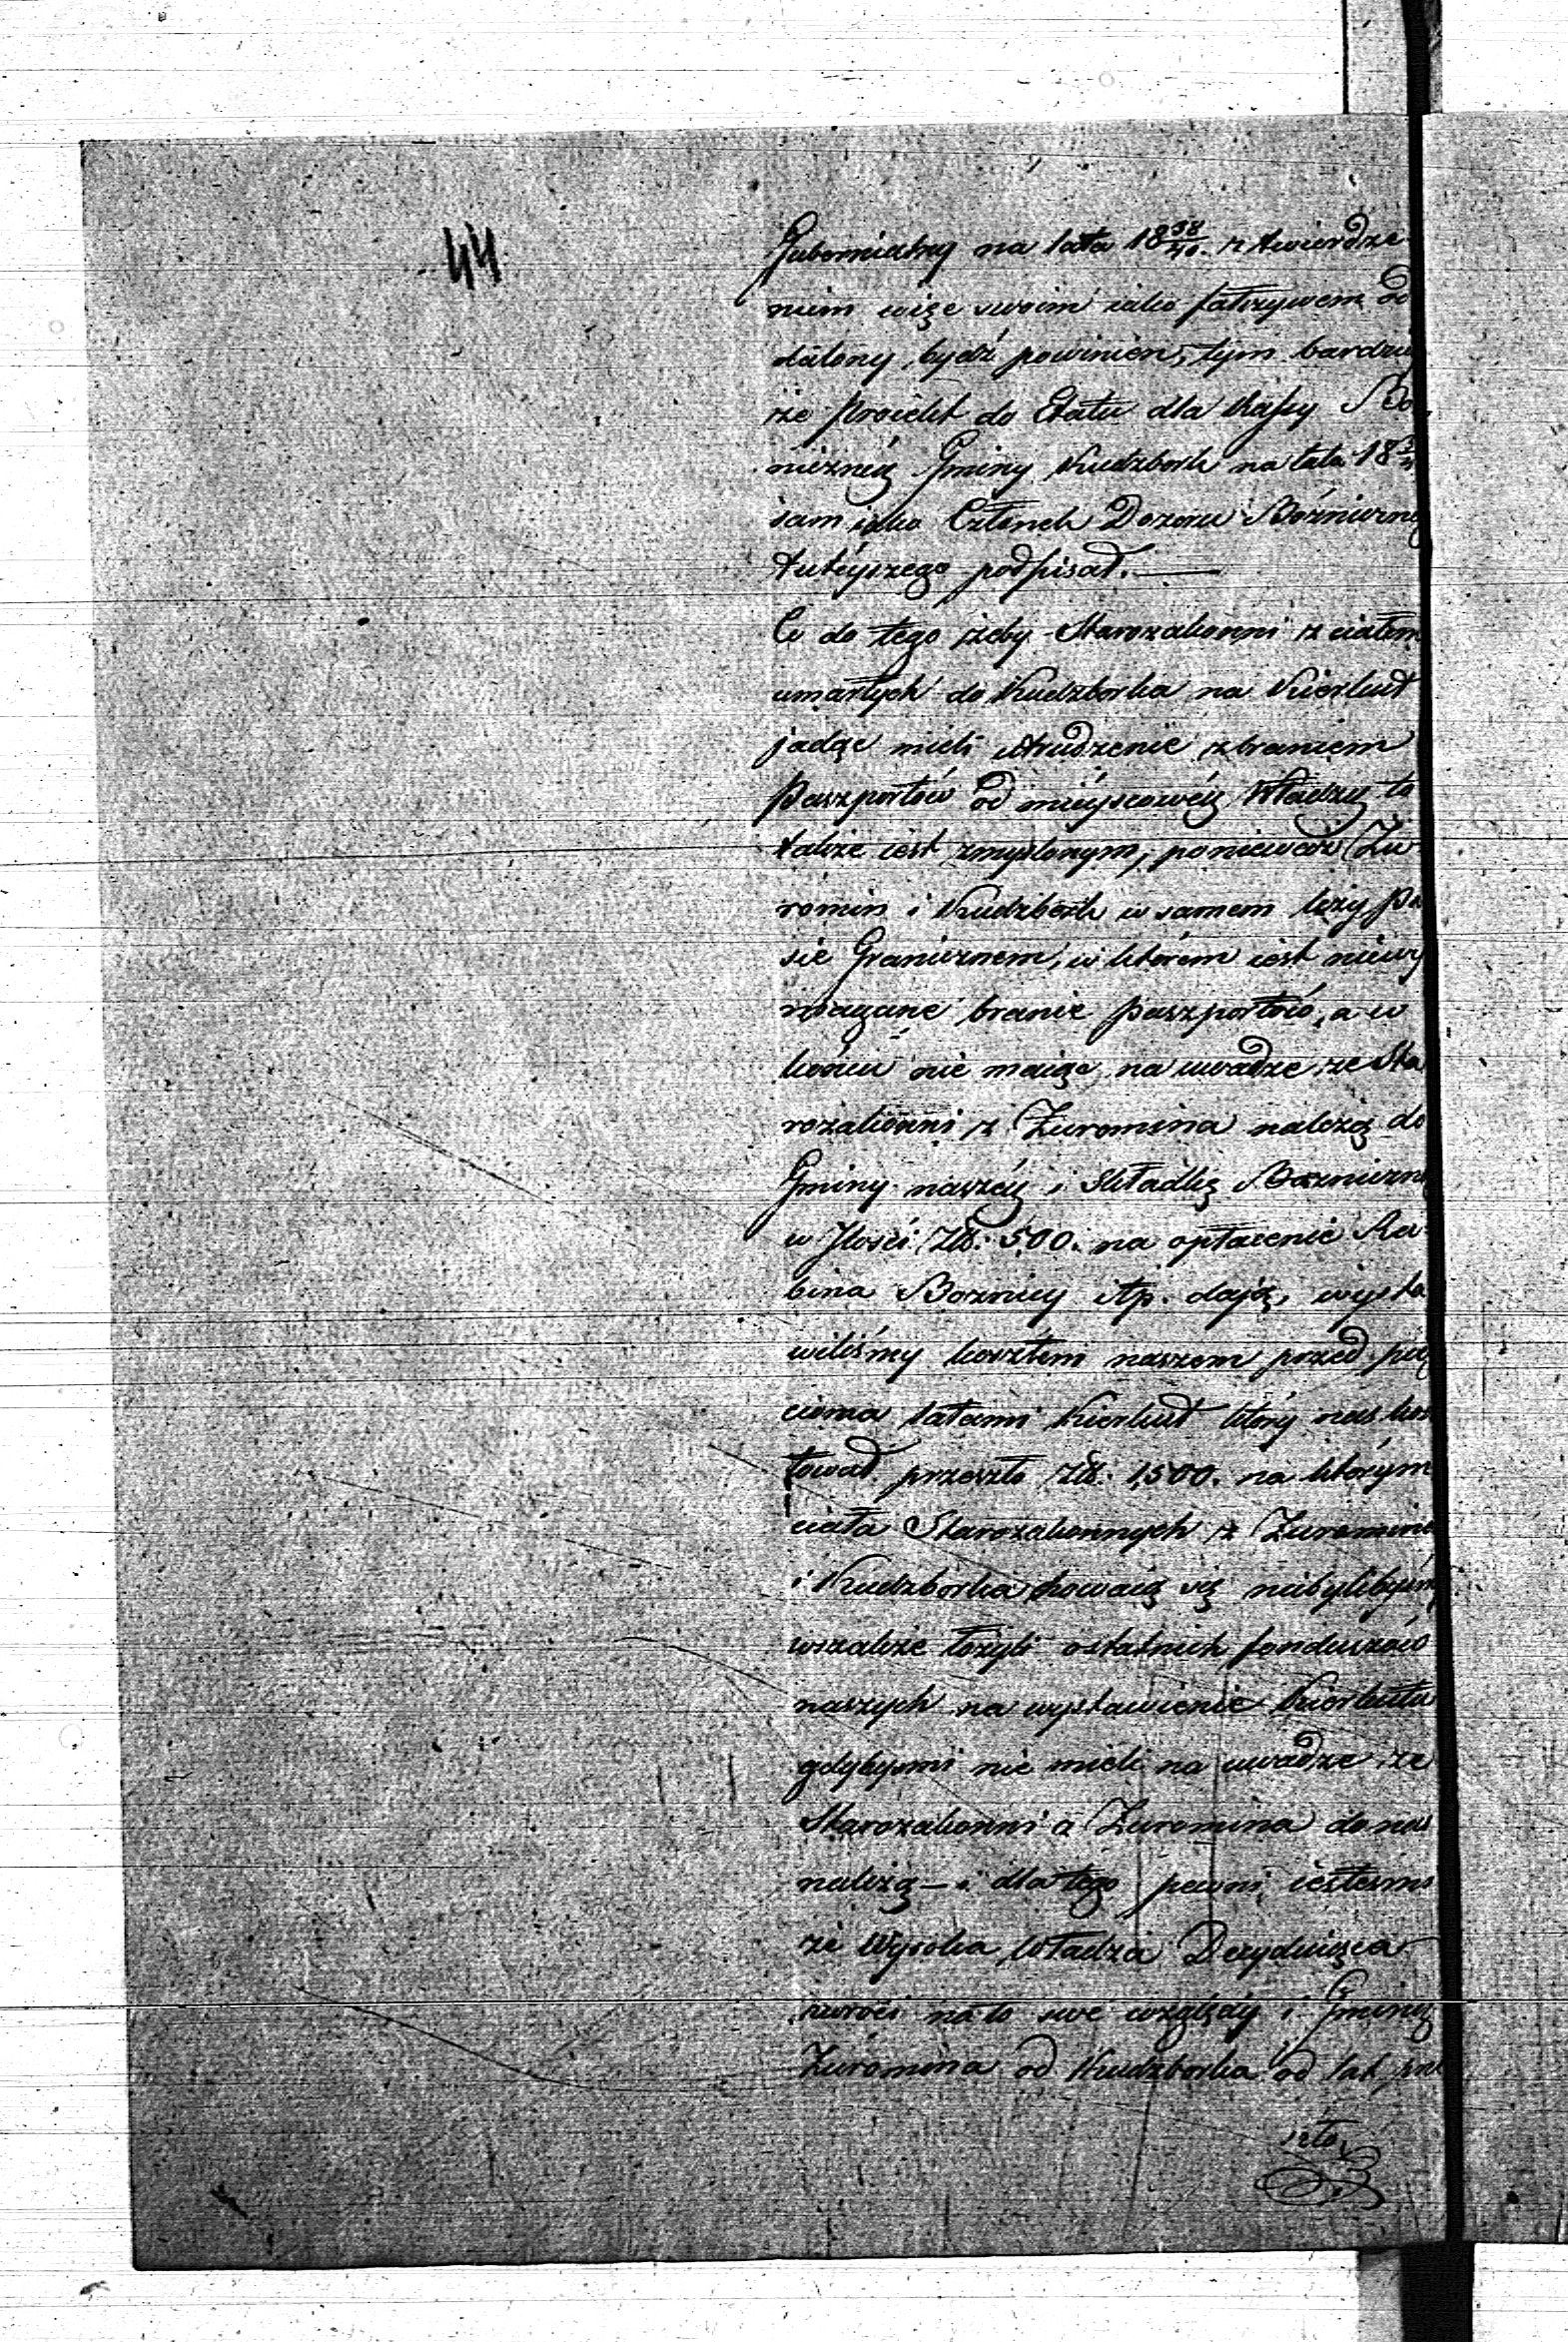 44
Gubernialny na lata 18 38/40. z twierdze
niem więc swoim iako fałszywem od
dalony, bydź powinien, tym bardziéj
że proiekt do Etatu dla Kassy Bo
nicznéy Gminy Kudzbork na lata 18
sam iako Członek Dozoru Bóżniczne
tutéyszego podpisał. —
Co do tego żeby Starozakonni z ciałem
umarłych do Kudzborka na Kierkut
jadąc mieli utrudzenie z braniem
Paszportów od mieyscowéy Władzy to
także iest zmyślonym, ponieważ Żu
romin i Kudzbork w samem leży Pa
sie Granicznem, w którem iest niewy
magane branie paszportów, a w
końcu nie maiąc na uwadze, że Sta
rozakonni z Żuromina należą do
Gminy naszéy i Składkę Bożniczn
w Ilości Zł: 500. na opłacenie Ra
bina Boznicy itp. dają, wysta
wiliśmy kosztem naszem przed pię
cioma latami Kierkut który nas kos
tował przeszło Zł: 1,500. na którym
ciała Starozakonnych z Żuromina
i Kudzborka chowaią się niebylibyśm
wszakże łożyli ostatnich funduszów
naszych na wystawienie Kierkutu
gdybysmi nie mieli na uwadze że
Starozakonni z Żuromina do nas
należą — i dla tego pewni iestesmi
że Wysoka Władza Decyduiąca
zwróci na to swe względy i Gminy
Żuromina od Kudzborka od lat prze
szło